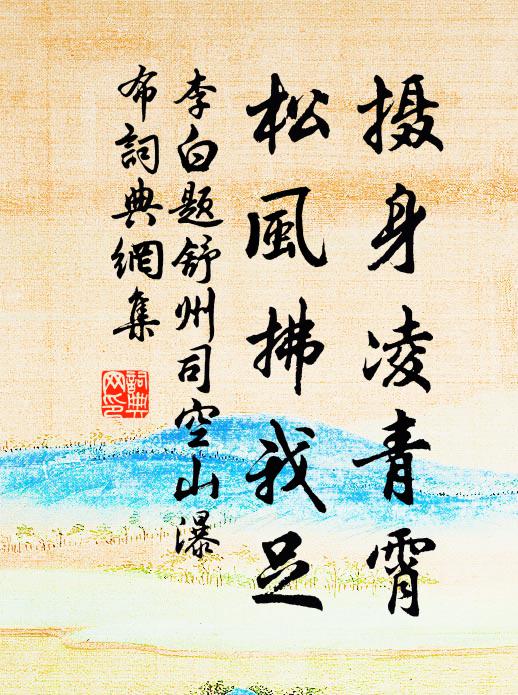 摄身凌青霄
松風拂我足
李白题舒州司空山瀑
布詞典網集
詞典
网印